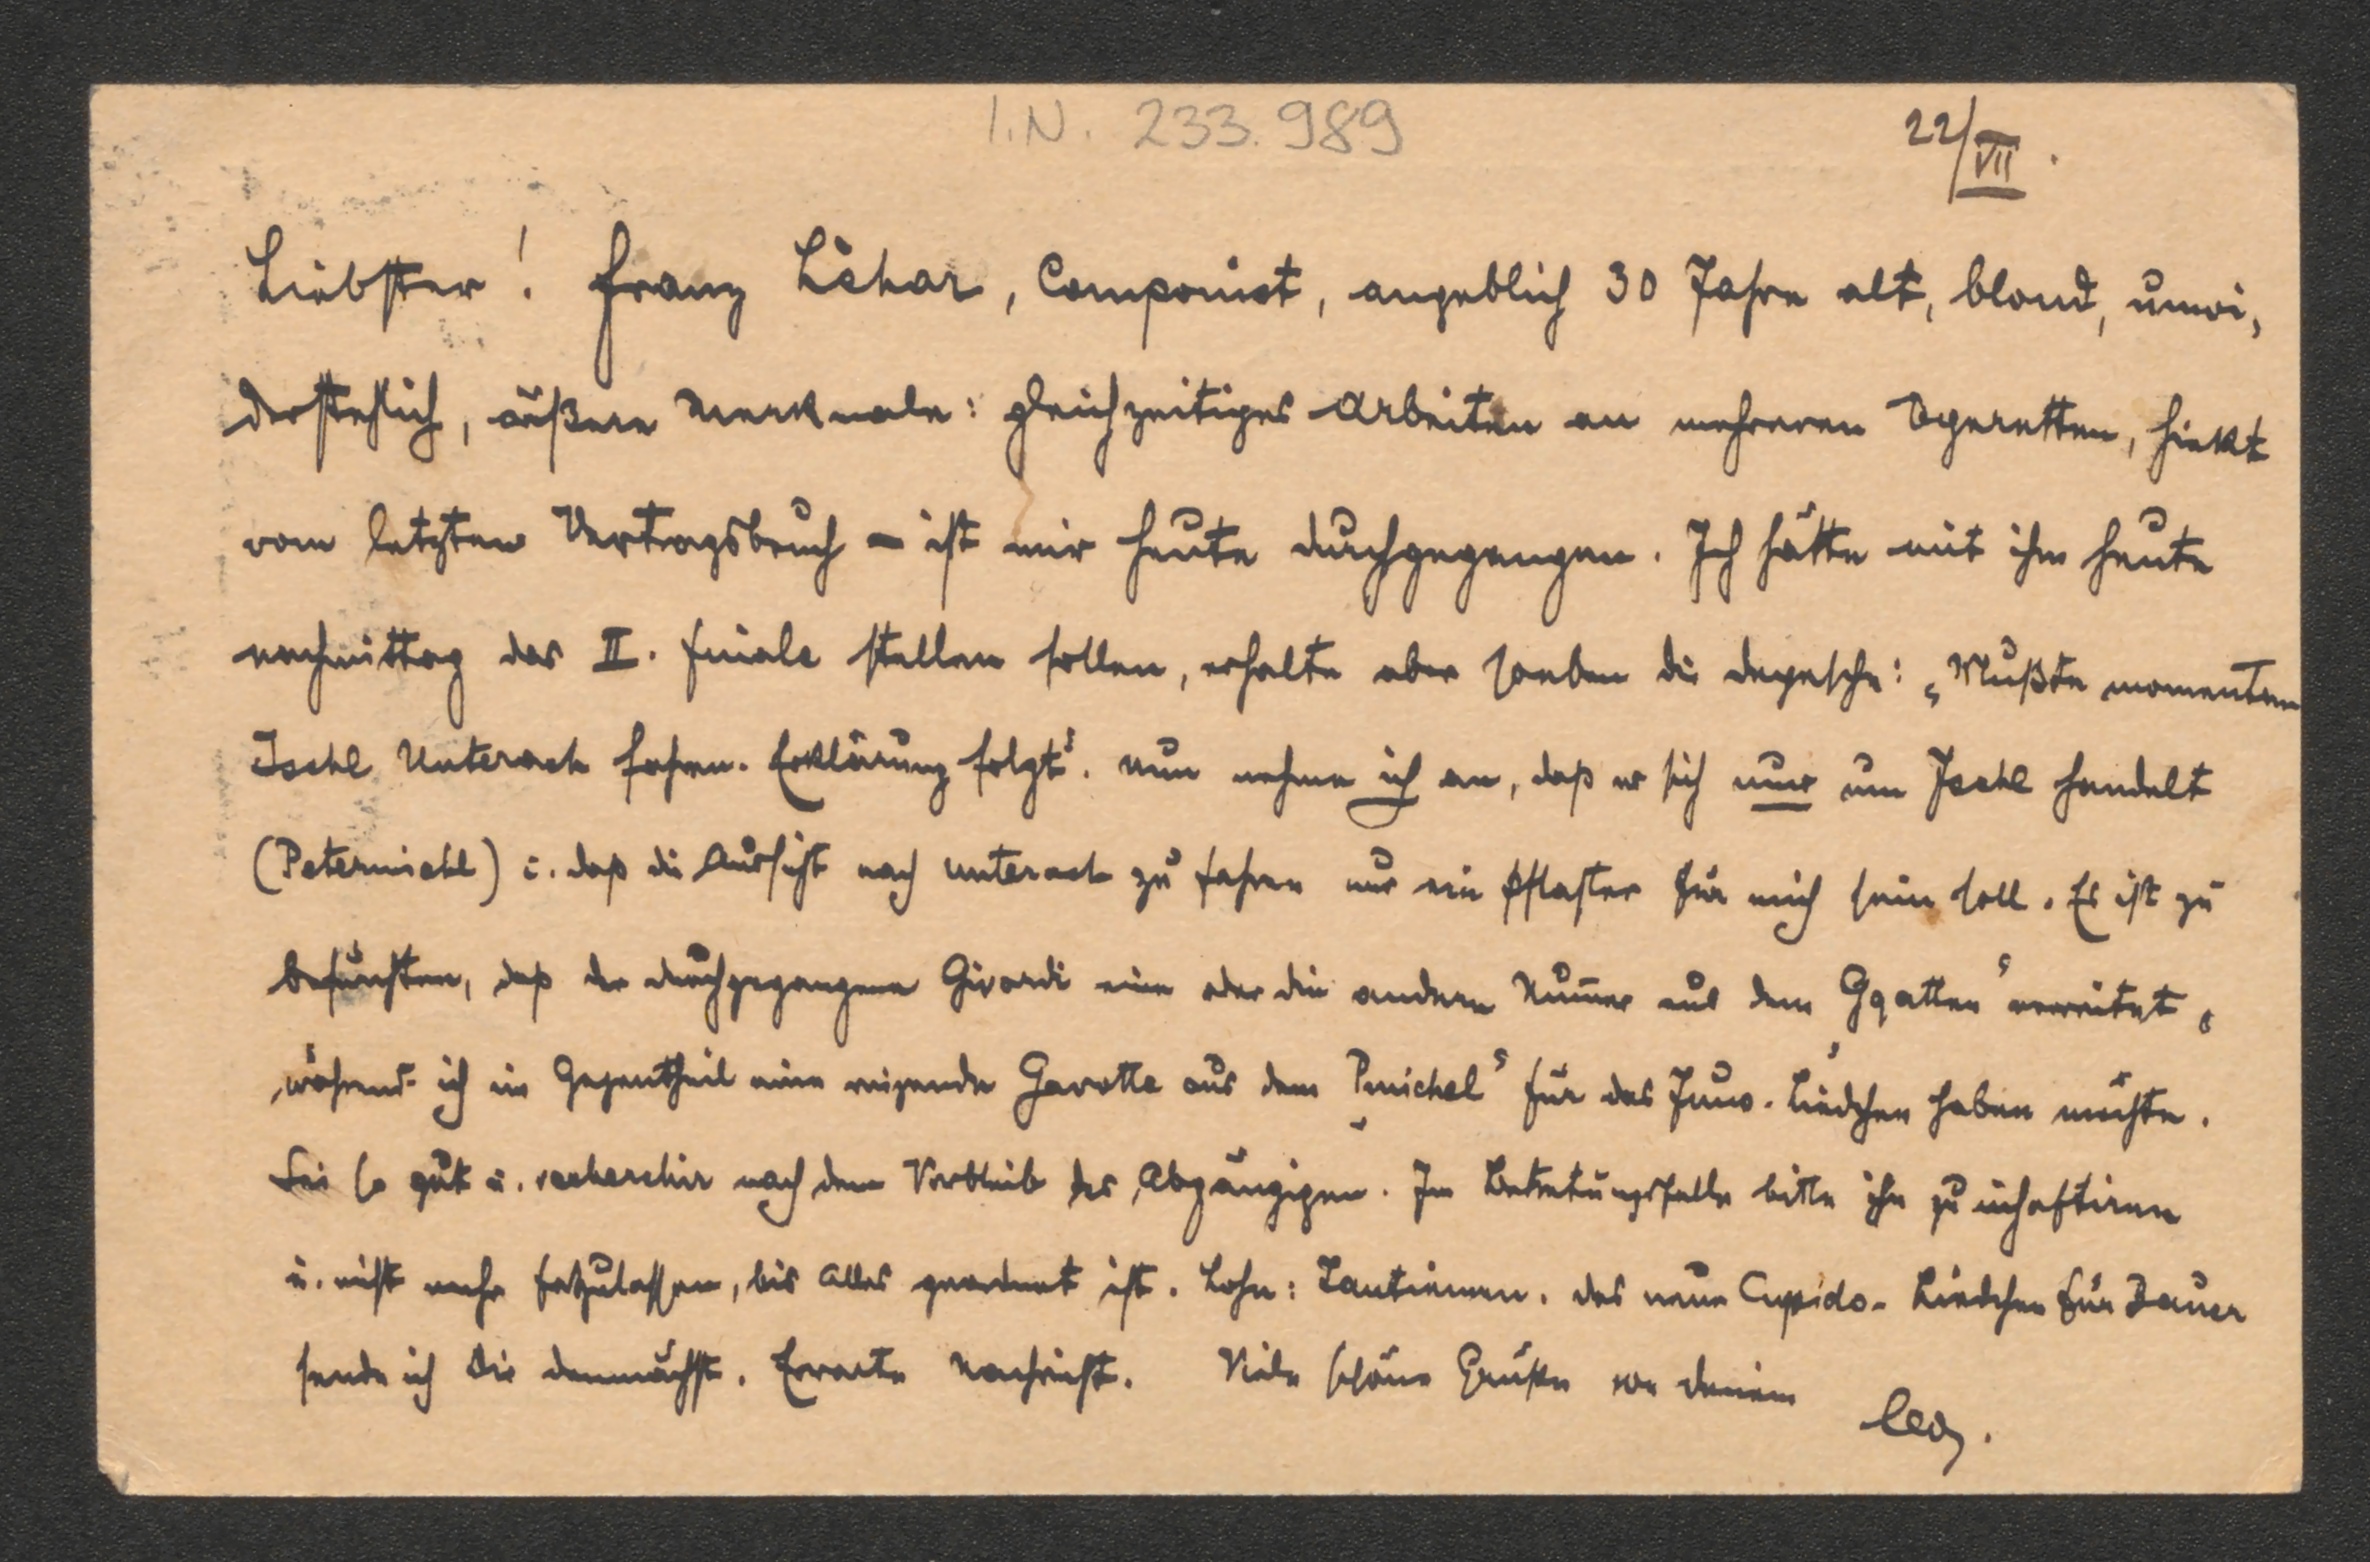 I.N. 233.989
22/VII.
Liebster! Franz Léhar, Componist, angeblich 30 Jahre alt, blond, unwi-
derstehlich, äußere Merkmale: gleichzeitiges Arbeiten an mehreren Operetten, hinkt
vom letzten Vertragsbruch – ist mir heute durchgegangen. Ich hätte mit ihm heute
nachmittag das II. Finale stellen sollen, erhalte aber soeben die Depesche: „Mußte momentan
Ischl Unterach fahren. Erklärung folgt“. Nun nehme ich an, daß es sich nur um Ischl handelt
(Petermichl) u. daß die Aussicht nach Unterach zu fahren nur ein Pflaster für mich sein soll. Es ist zu
befürchten, daß der durchgegangene Girardi eine oder die andere Numer aus dem „Ggatten“
während ich im Gegentheil eine reizende Gavotte aus dem „Pmichel“ für das Juw. Liedchen haben möchte.
Sei so gut u. recherchir nach dem Verbleib des Abgängigen. Im Betretungsfalle bitte ihn zu inhaftiren
u. nicht mehr loszulassen, bis alles geordnet ist. Lohn: Tantiemen. Das neue Cupido-Liedchen für Bauer
sende ich Dir demnächst. Erwarte Nachricht. Viele schöne Grüße von Deinem
Leo.